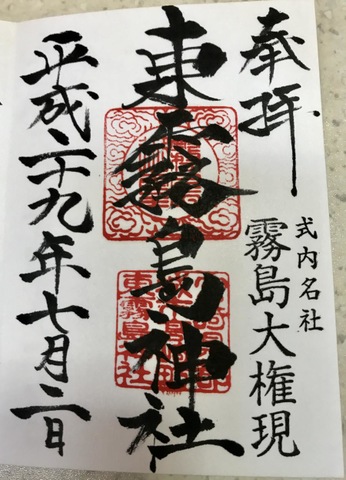 奉拝
式内名社
霧島大権現
東霧島神社
平成二十九年七月二日
東霧島神社